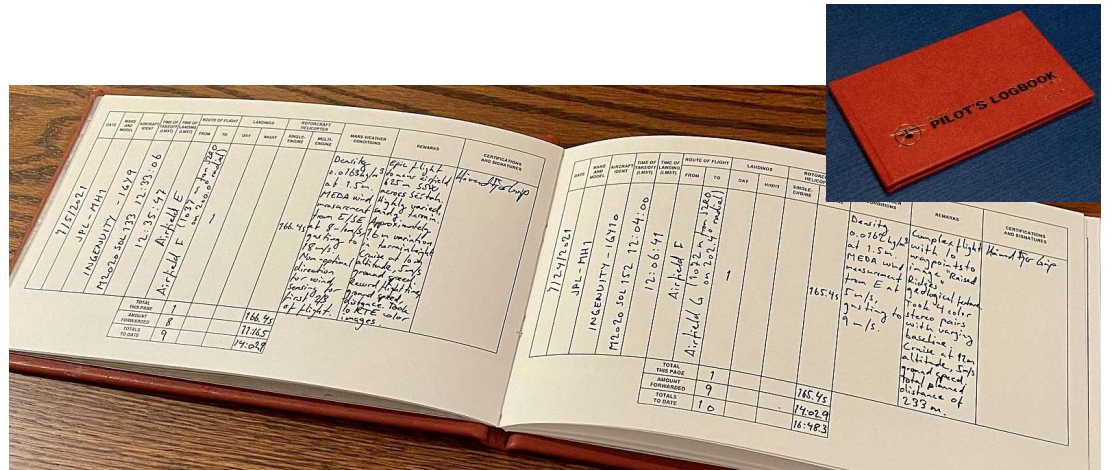 PILOT'S LOGBOOK
DATE
MAKE AND MODEL
AIRCRAFT IDENT
TIME OF TAKEOFF (LMST)
TIME OF LANDING (LMST)
ROUTE OF FLIGHT
FROM
TO
LANDINGS
DAY
NIGHT
ROTORCRAFT HELICOPTER
SINGLE-ENGINE
MULTI-ENGINE
MARS WEATHER CONDITIONS
REMARKS
CERTIFICATIONS AND SIGNATURES
7/5/2021
JPL-MH1
INGENUITY - IGY9
M2020 SOL 133 12:33:06
12:35:47
Airfield E
Airfield F
1
166.4s
Density
at 1.5m.
MEDA wind
measurement
from E/SE
at 8-
gusting to
18 m/s
direction
for wind
sensing for
first 2/3
of flight.
Epic flight
to new airfield
625 m SSW
across Séítah.
Highly varied,
sandy terrain.
in terrain height
Cruise at 10m
altitude, 5m/s
ground speed.
Record flight time,
ground speed,
distance. Took
10 RTE color
images.
TOTAL THIS PAGE 1 166.4s
AMOUNT FORWARDED 8 11:16.5
TOTALS TO DATE 9 14:02.9
DATE
MAKE AND MODEL
AIRCRAFT IDENT
TIME OF TAKEOFF (LMST)
TIME OF LANDING (LMST)
ROUTE OF FLIGHT
FROM
TO
LANDINGS
DAY
NIGHT
SINGLE-ENGINE
CONDITIONS
REMARKS
CERTIFICATIONS AND SIGNATURES
7/24/2021
JPL-MH1
INGENUITY - IGY10
M2020 SOL 152 12:04:00
12:06:41
Airfield F
Airfield G
1
165.4s
Density
at 1.5m.
MEDA wind
measurement
from E at
5 m/s,
gusting to
9 m/s.
Complex flight
with 10
waypoints to
image "Raised
Ridges"
geological feature.
Took 4 color
stereo pairs
with varying
baseline.
Cruise at 12m
altitude, 5m/s
ground speed.
Total planned
distance of
233 m.
TOTAL THIS PAGE 1 165.4s
AMOUNT FORWARDED 9 14:02.9
TOTALS TO DATE 10 16:48.3